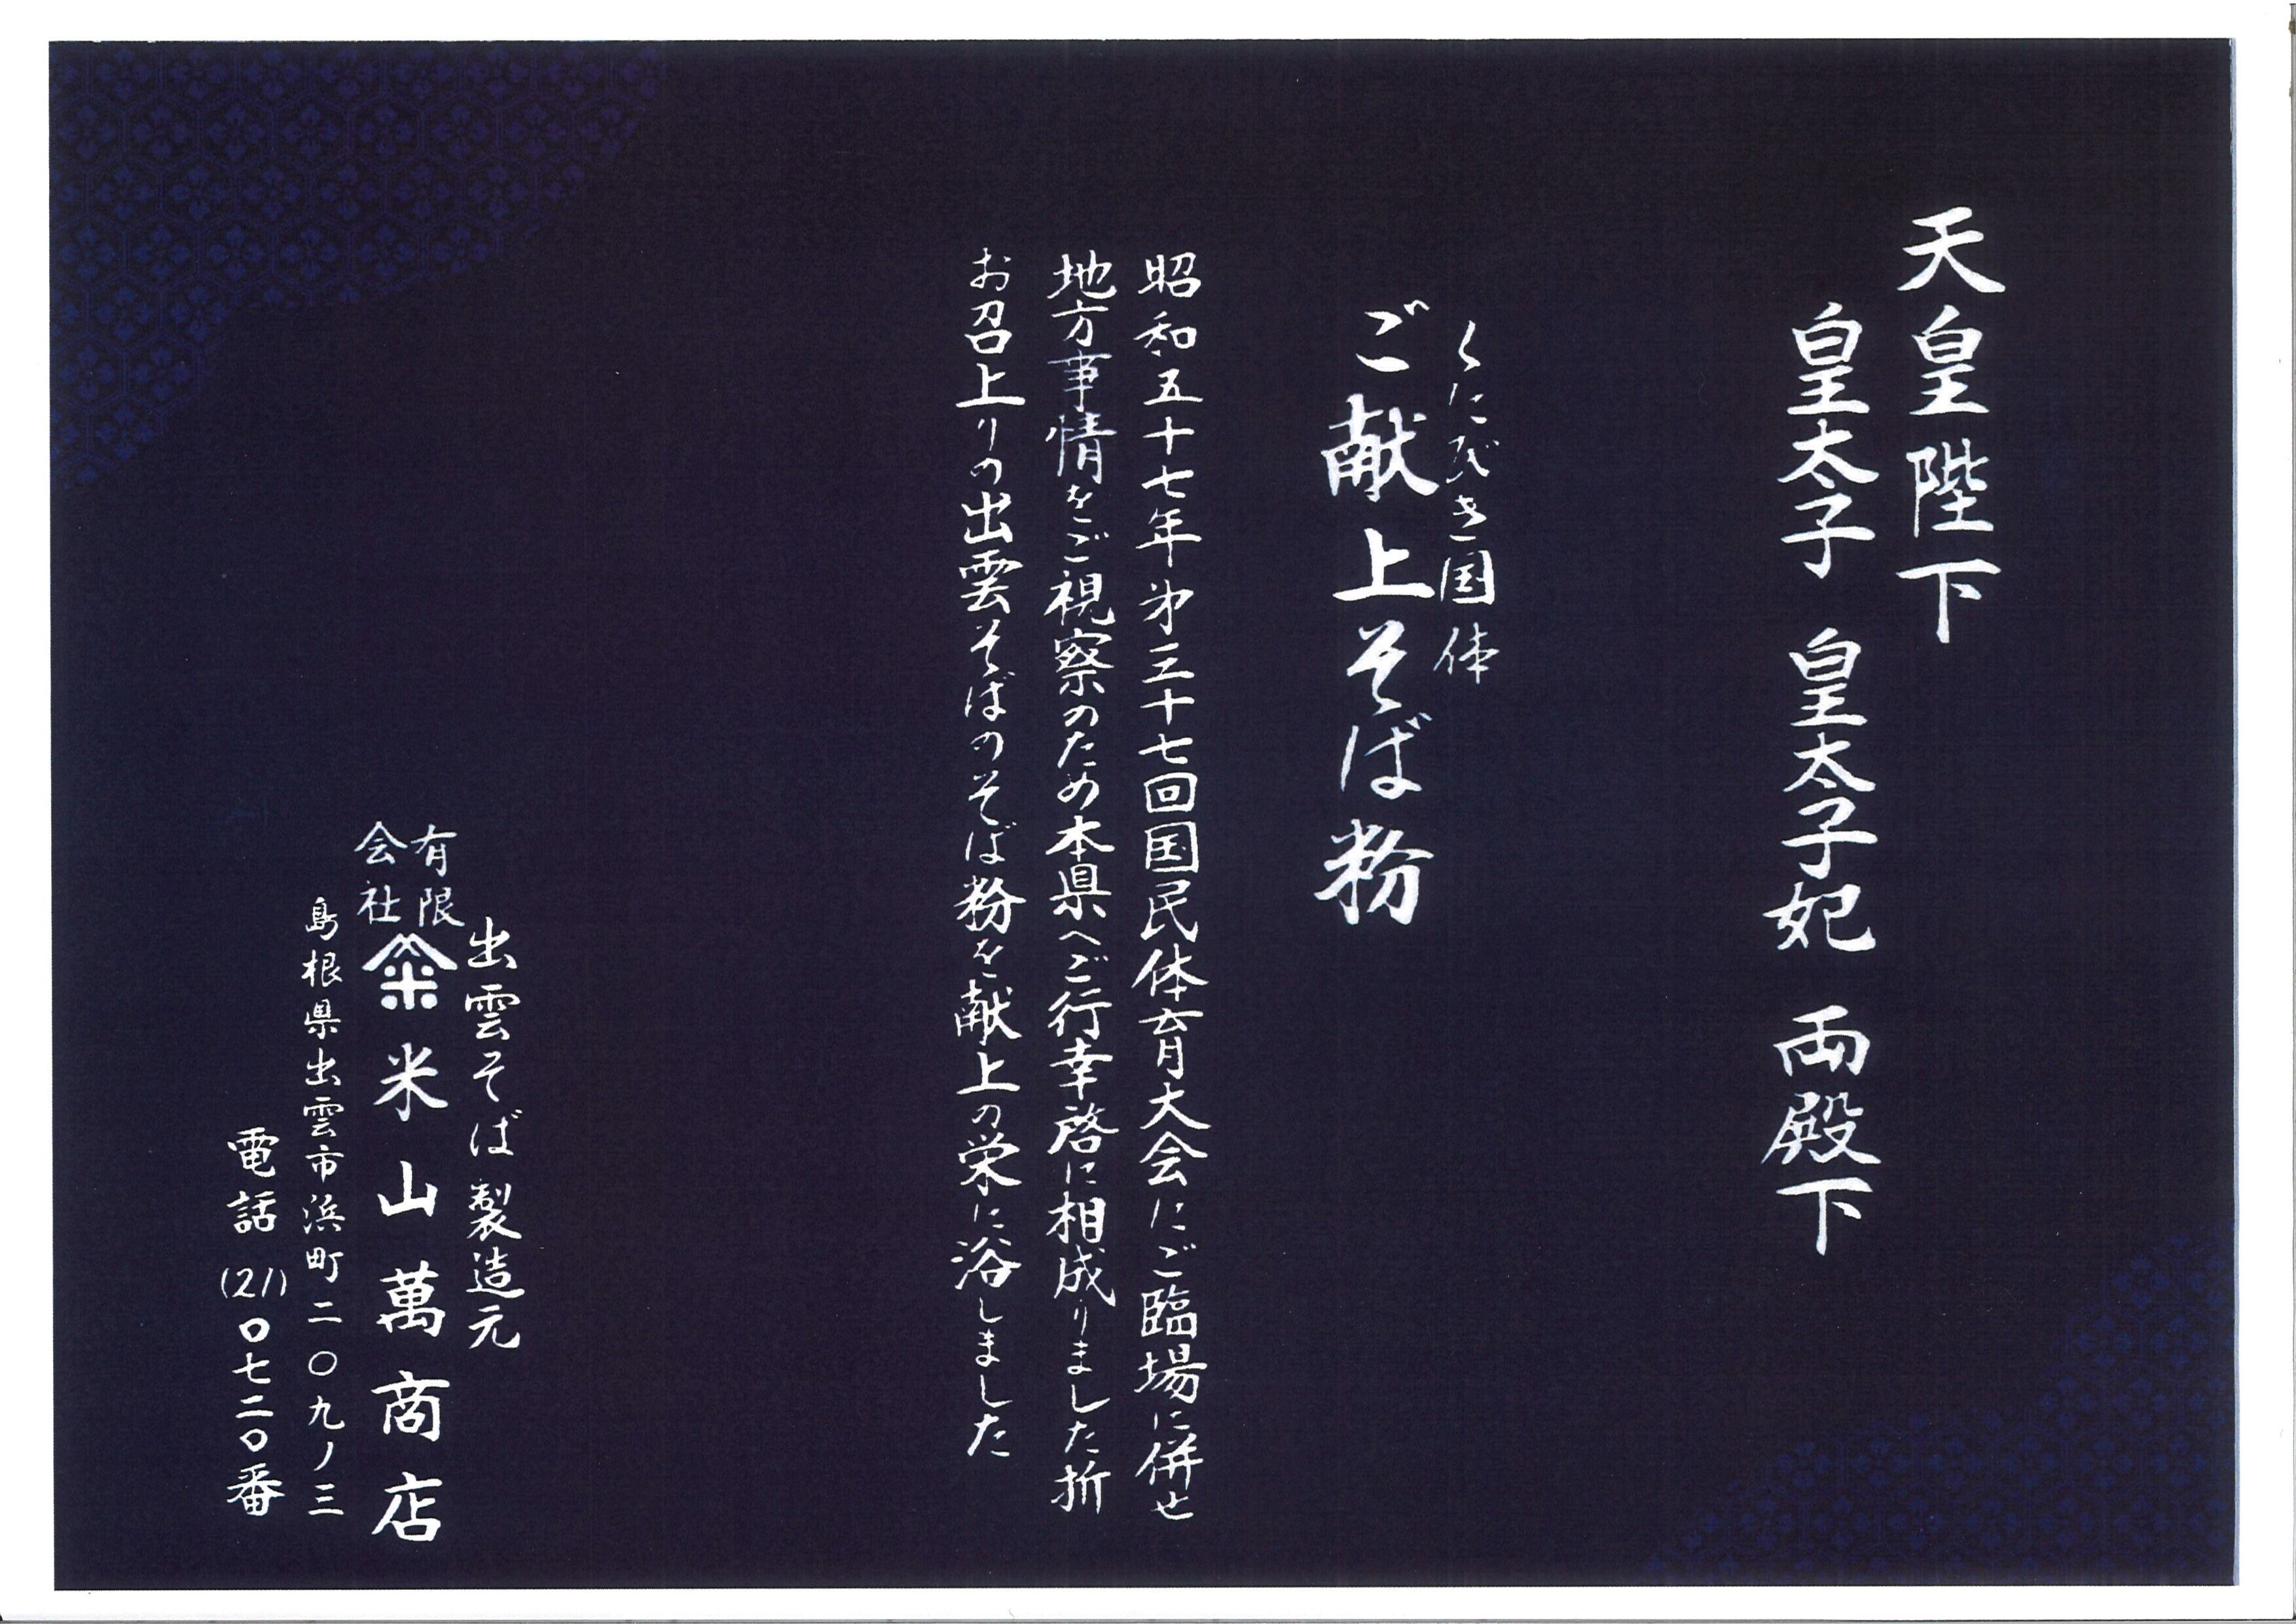 天皇陛下
皇太子 皇太子妃 両殿下
くにびき国体
ご献上そば粉
昭和五十七年㐧三十七回国民体育大会にご臨場に併せ
地方事情をご視察のため本県へご行幸啓に相成りました折
お召上りの出雲そばのそば粉を献上の栄に浴しました
出雲そば製造元
有限会社 米山萬商店
島根県出雲市浜町二〇九ノ三
電話(21)〇七二〇番